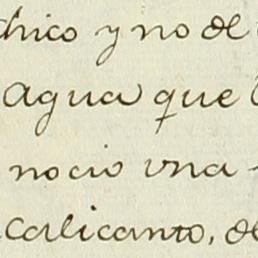 chico y no de
Agua que
nocio vna
calicanto, de